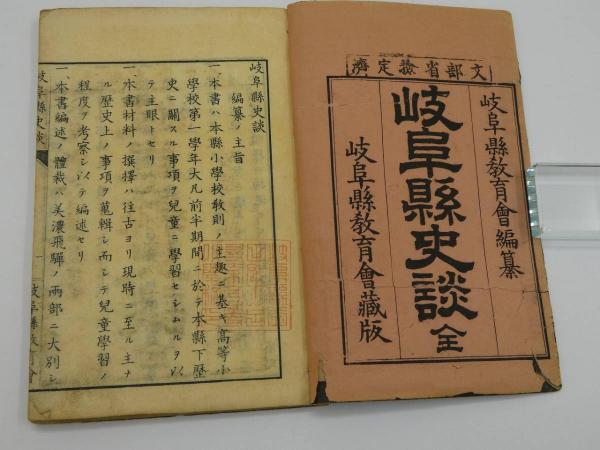 文部省檢定濟
岐阜縣教育會編纂
岐阜縣史談 全
岐阜縣教育會藏版
岐阜縣史談
編纂ノ主旨
一、本書ハ本縣小學校教則ノ主趣ニ基キ高等小
學校第一學年大凡前半期間ニ於テ本縣下歷
史ニ關スル事項ヲ兒童ニ學習セシムルヲ以
テ主眼トセリ
一、本書材料ノ撰擇ハ往古ヨリ現時ニ至ル主ナ
ル歷史上ノ事項ヲ蒐輯シ而シテ兒童學習ノ
程度ヲ考察シ以テ編述セリ
一、本書編述ノ體裁ハ美濃飛驒ノ兩部ニ大別シ
岐阜縣史談
一
岐阜縣教育會